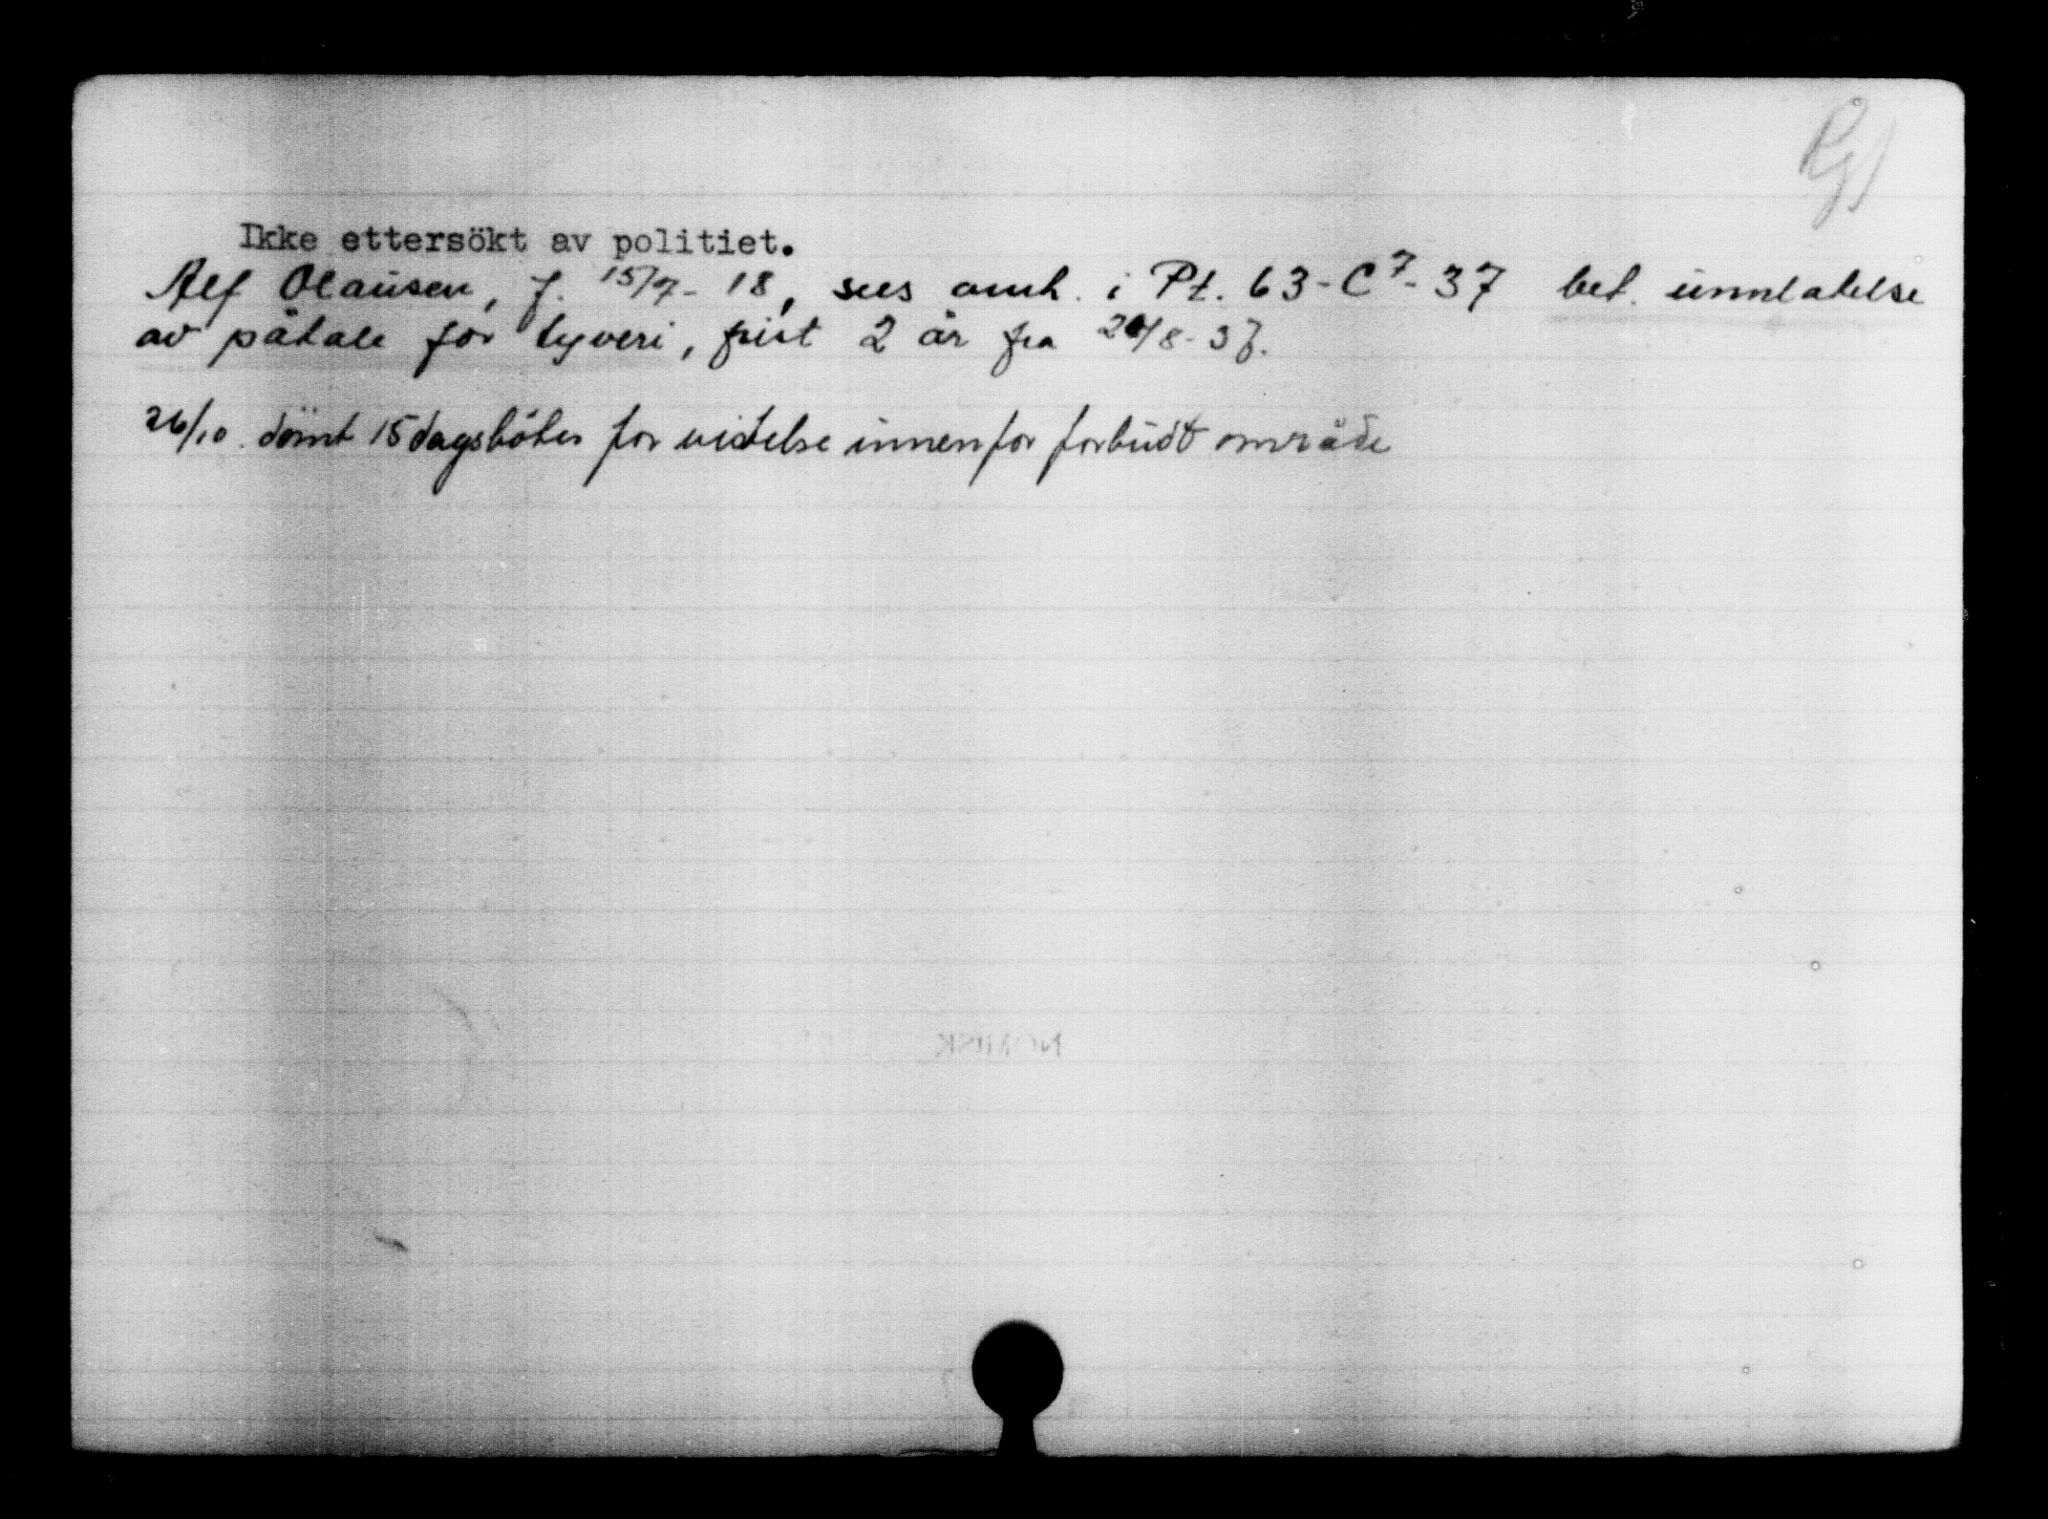 Rg
Ikke ettersökt av politiet.
Alf Olausen, f. 15/7-18, sees omh. i Pt. 63-C7-37 bet. unnlatelse
av påtale for tyveri, frist 2 år fra /8-37.
26/10. dömt 15 dagsböter for vistelse innenfor forbudt område